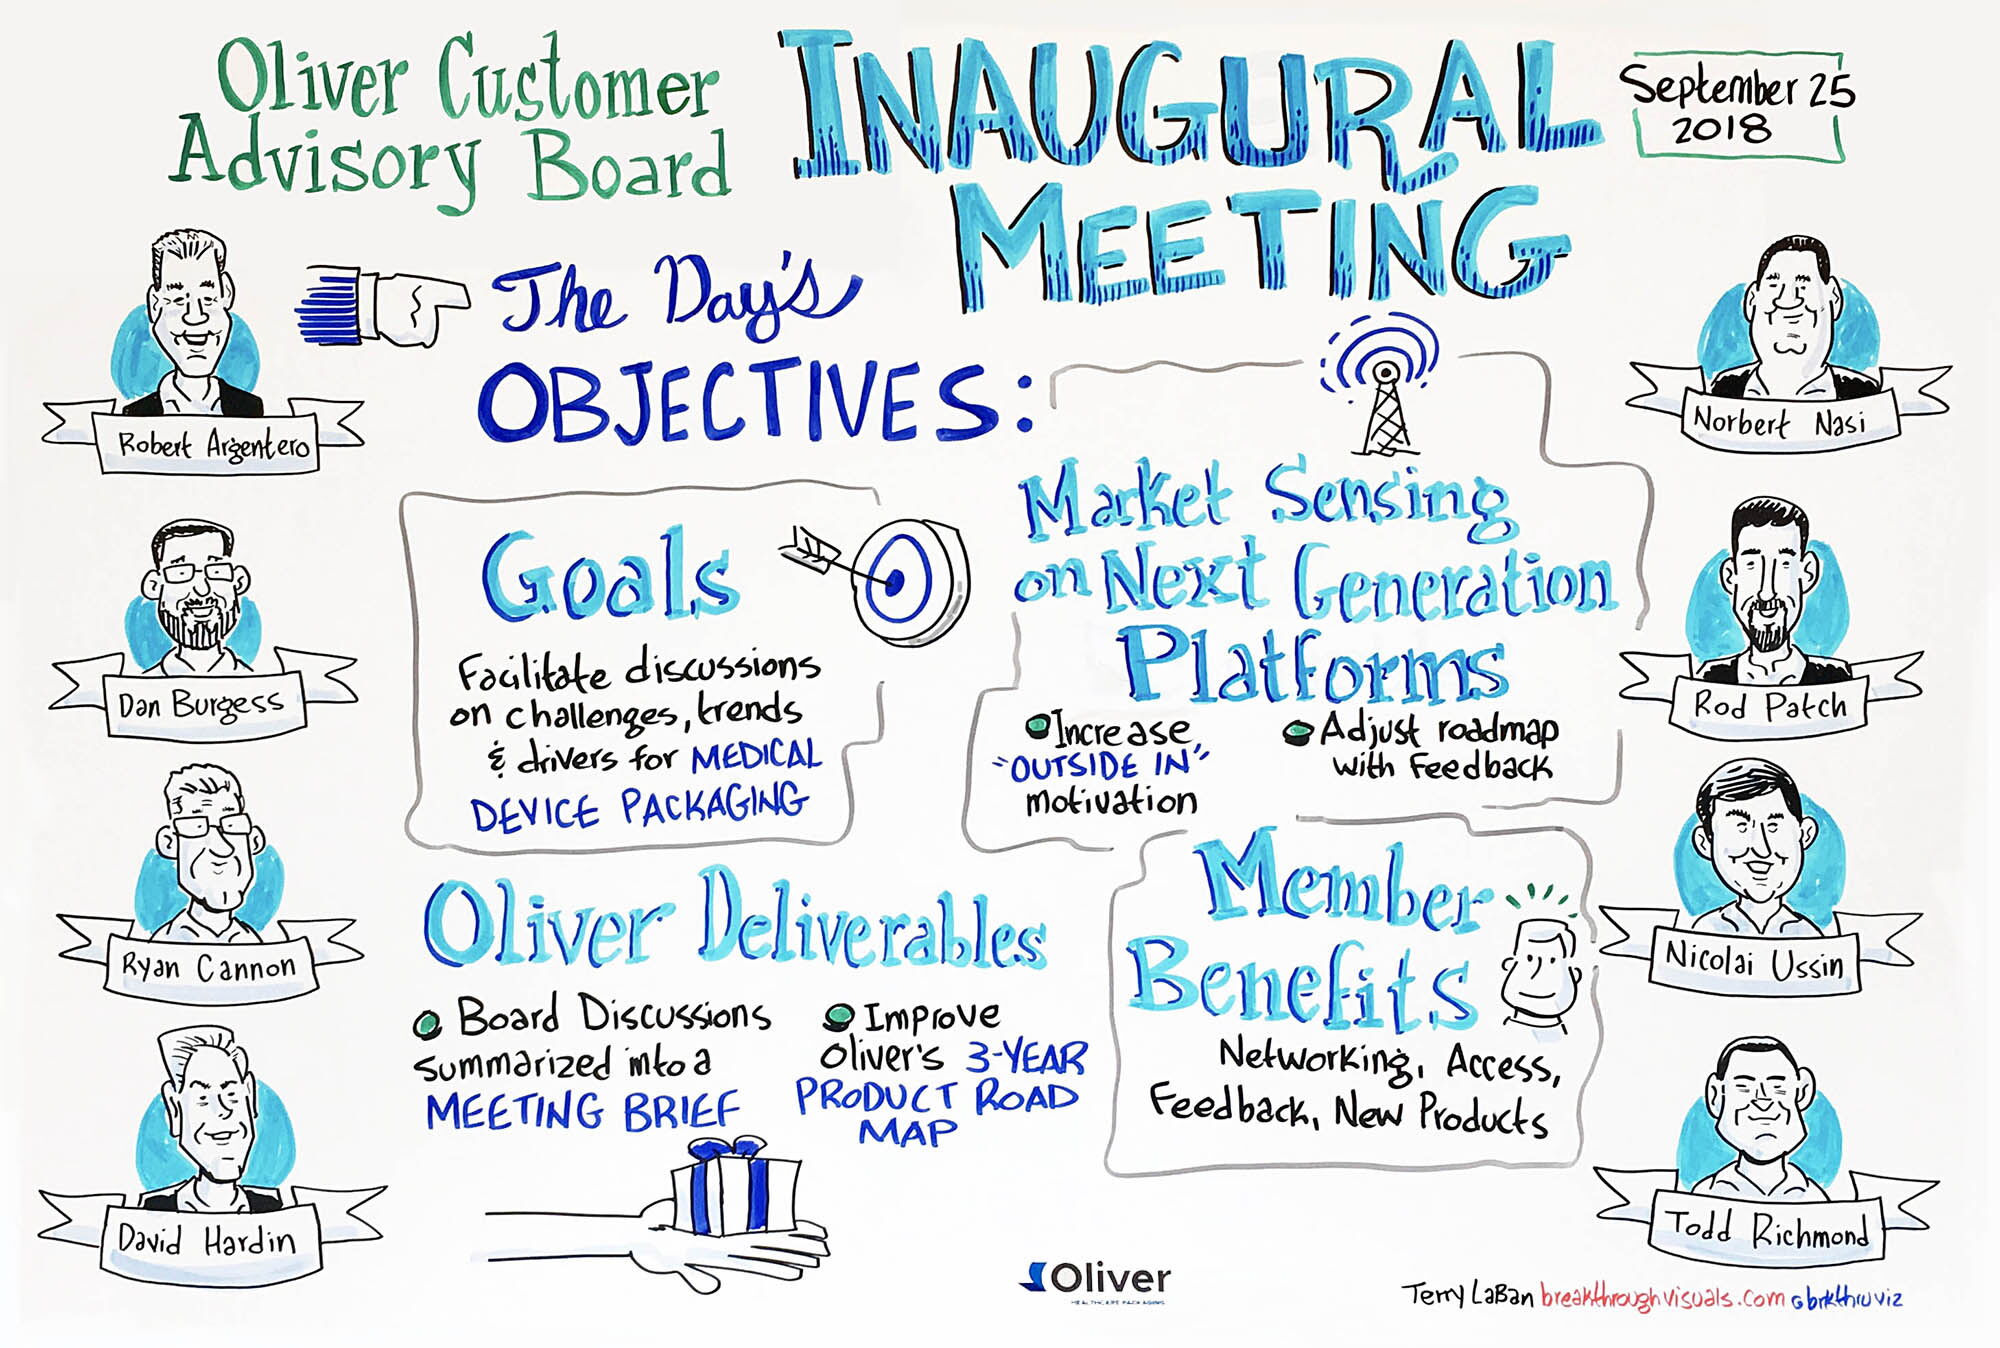 Oliver Customer
Advisory Board
INAUGURAL
MEETING
September 25
2018
The Day's
OBJECTIVES:
Robert Argentero
Dan Burgess
Ryan Cannon
David Hardin
Goals
Facilitate discussions
on challenges, trends
& drivers for MEDICAL
DEVICE PACKAGING
Market Sensing
on Next Generation
Platforms
Increase
"OUTSIDE IN"
motivation
Adjust roadmap
with Feedback
Oliver Deliverables
Board Discussions
summarized into a
MEETING BRIEF
Improve
Oliver's 3-YEAR
PRODUCT ROAD
MAP
Member
Benefits
Networking, Access,
Feedback, New Products
Norbert Nasi
Rod Patch
Nicolai Ussin
Todd Richmond
Oliver
HEALTHCARE PACKAGING
Terry LaBan breakthroughvisuals.com @brkthruviz